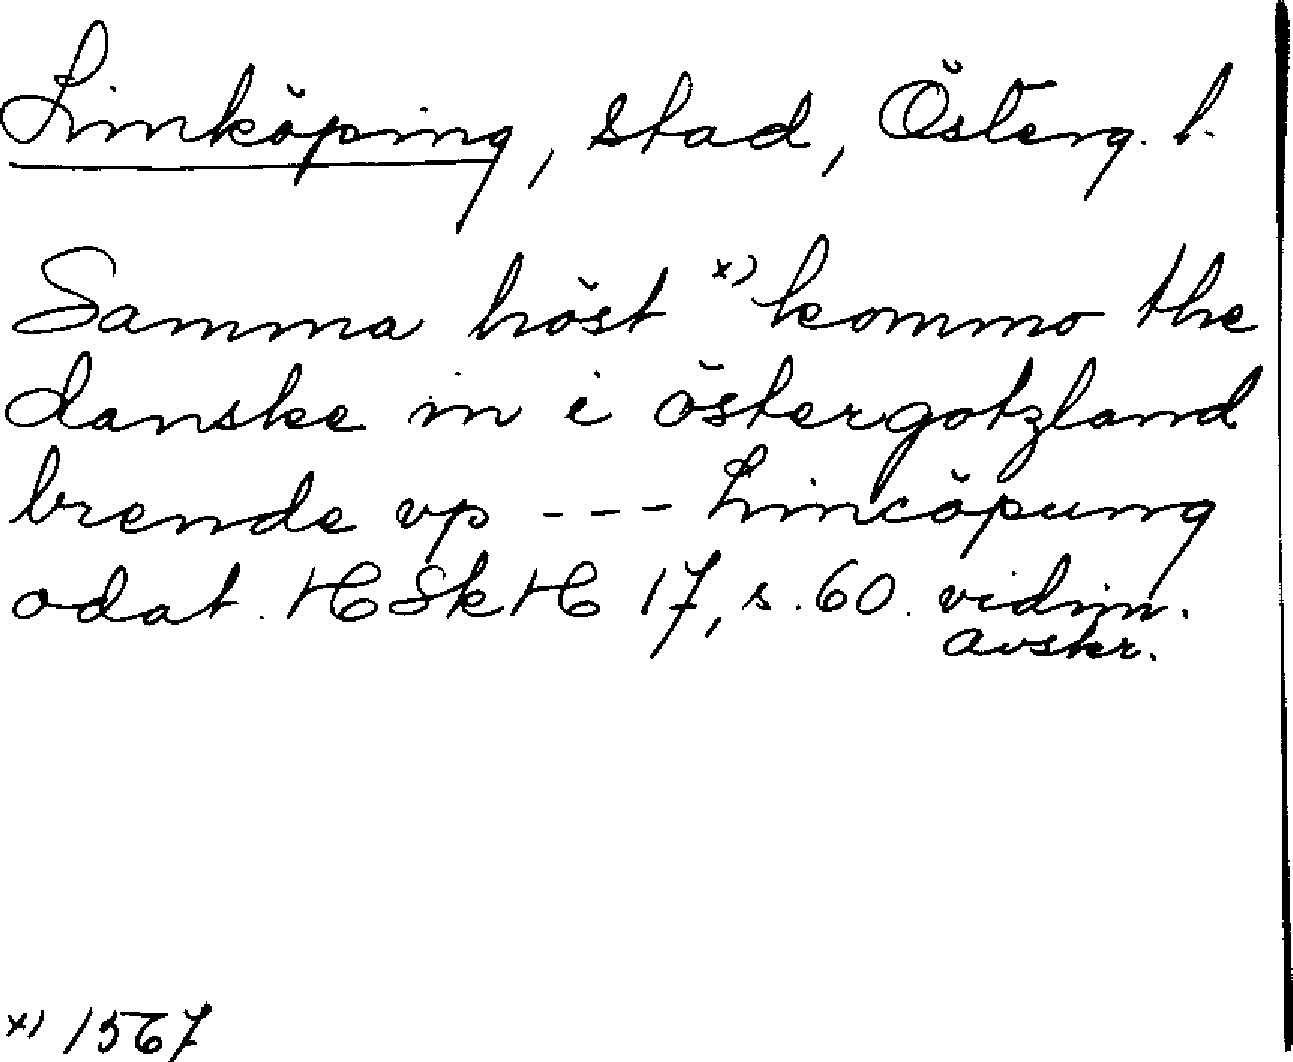 Linköping, stad, Österg. l.
Samma höst x) kommo the
danske in i östergotzland
brende vp --- Lincöpung
odat. HSkH 17, s. 60. vidim.
avskr.
x) 1567